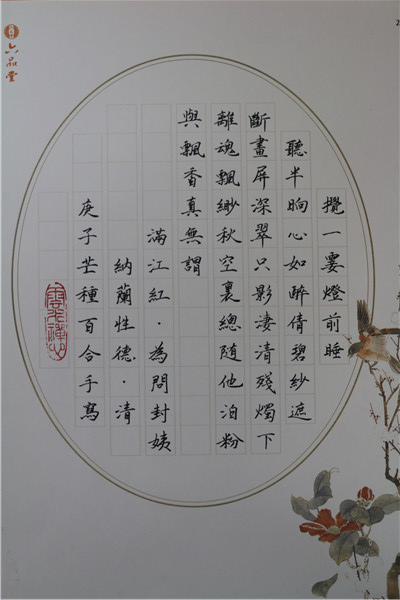 攪一霎燈前睡
聽半晌心如醉倩碧紗遮
斷畫屏深翠只影淒清殘燭下
離魂飄緲秋空裏總随他泊粉
與飄香真無謂
滿江紅·為問封姨
納蘭性德·清
庚子芒種百合手寫
六品堂
2